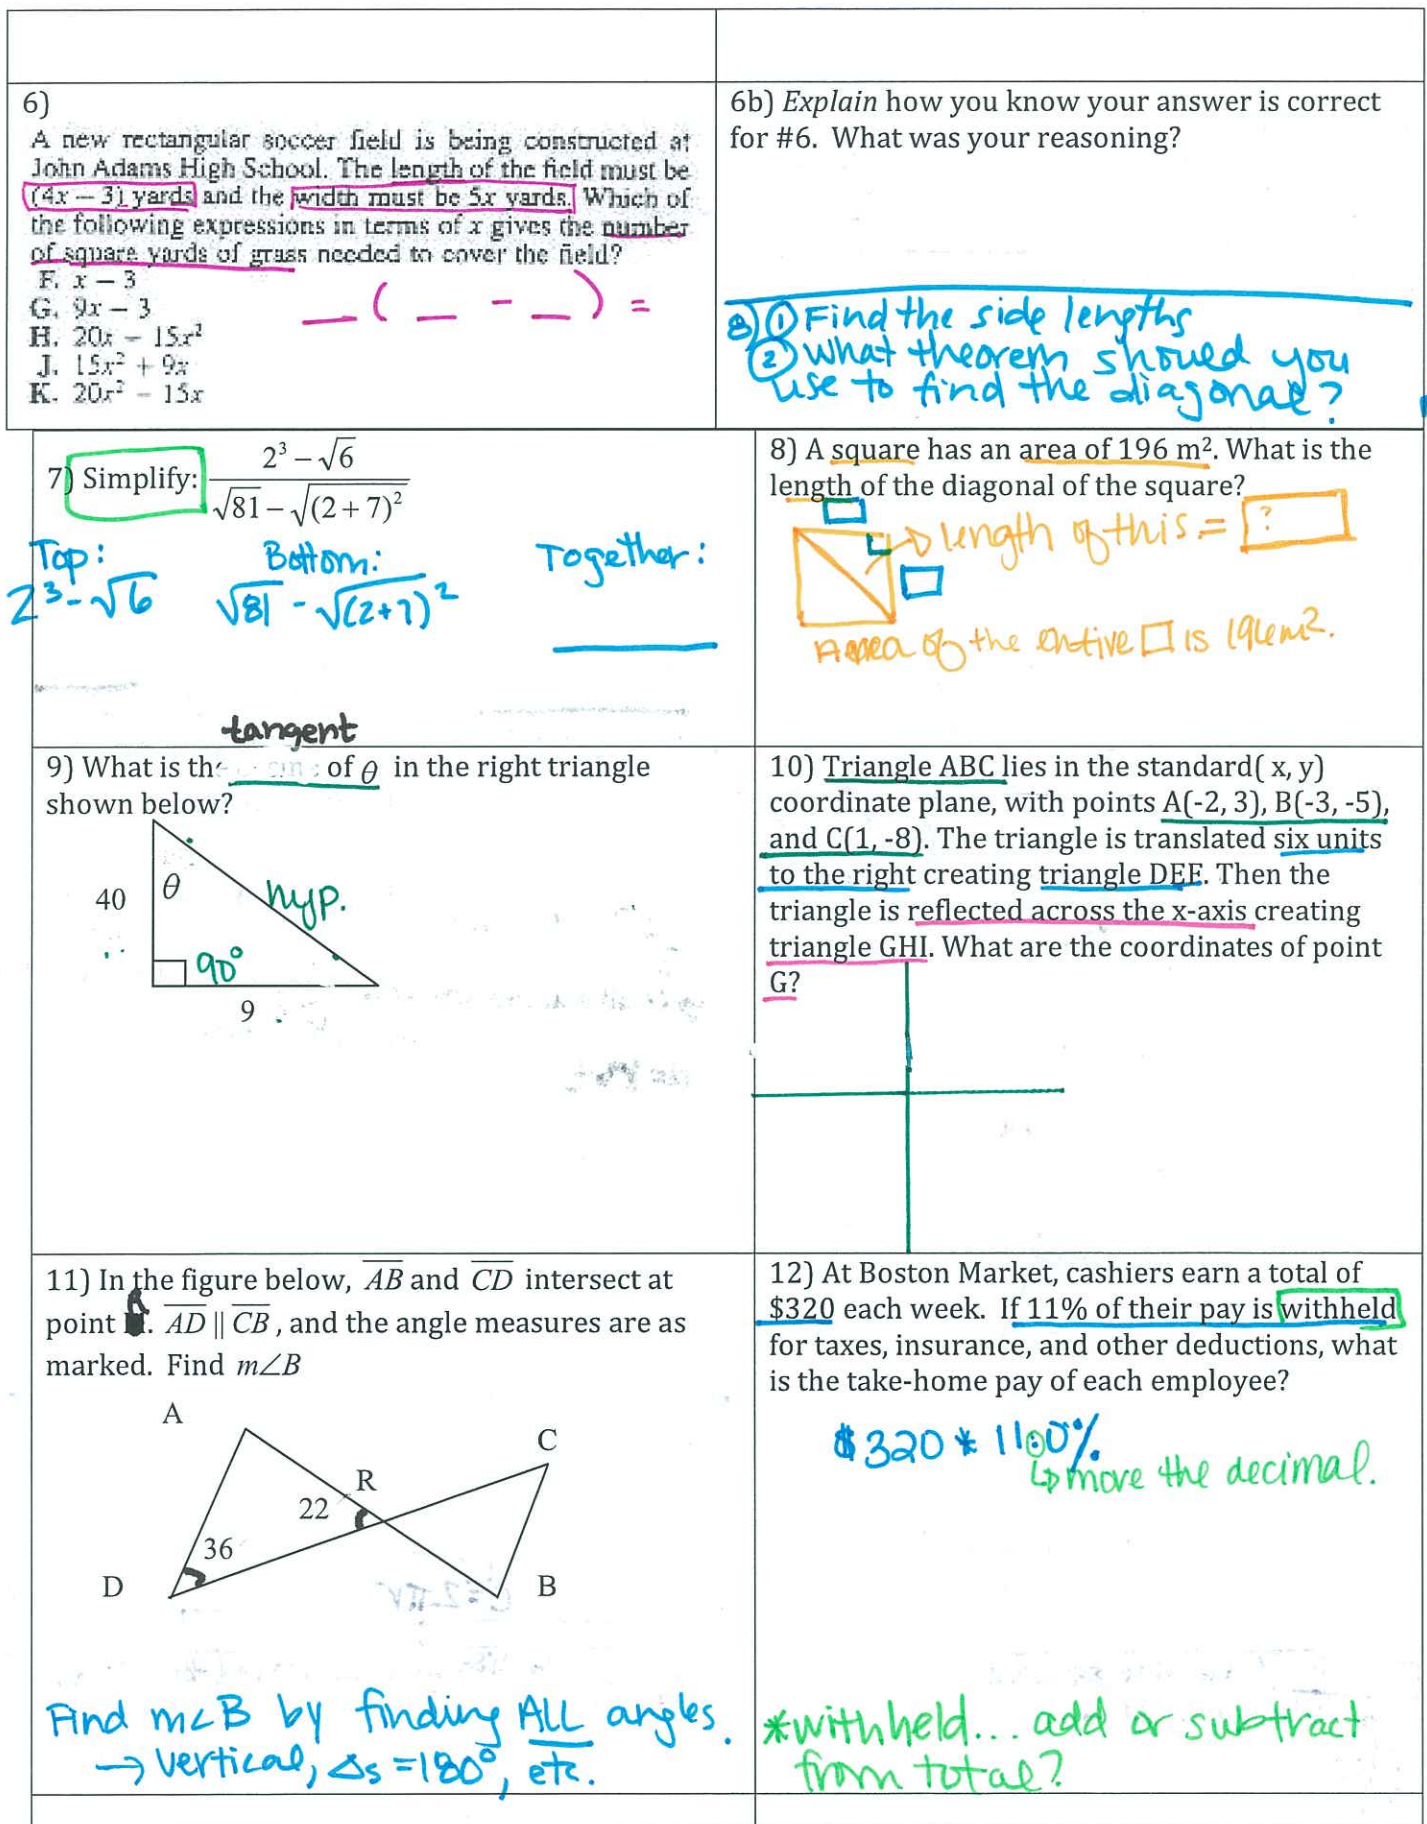 6)
A new rectangular soccer field is being constructed at
John Adams High School. The length of the field must be
(4x – 3) yards and the width must be 5x yards. Which of
the following expressions in terms of x gives the number
of square yards of grass needed to cover the field?
F. x – 3
G. 9x – 3
H. 20x – 15x²
J. 15x² + 9x
K. 20x² – 15x
_ ( _ - _ ) =
6b) Explain how you know your answer is correct
for #6. What was your reasoning?
8) ① Find the side lengths
② what theorem should you
use to find the diagonal?
7) Simplify: (2³ – √6) / (√81 – √(2 + 7)²)
Top: Bottom: Together:
2³ - √6 √81 - √(2+7)²
8) A square has an area of 196 m². What is the
length of the diagonal of the square?
length of this = ?
Area of the entire □ is 196m².
tangent
9) What is the of θ in the right triangle
shown below?
40 θ hyp.
90°
9
10) Triangle ABC lies in the standard( x, y)
coordinate plane, with points A(-2, 3), B(-3, -5),
and C(1, -8). The triangle is translated six units
to the right creating triangle DEF. Then the
triangle is reflected across the x-axis creating
triangle GHI. What are the coordinates of point
G?
11) In the figure below, AB and CD intersect at
point R. AD || CB, and the angle measures are as
marked. Find m∠B
A
C
R
22
36
D
B
Find m∠B by finding ALL angles.
→ vertical, Δs = 180°, etc.
12) At Boston Market, cashiers earn a total of
$320 each week. If 11% of their pay is withheld
for taxes, insurance, and other deductions, what
is the take-home pay of each employee?
$320 * 11.0%
↳ move the decimal.
*withheld... add or subtract
from total?